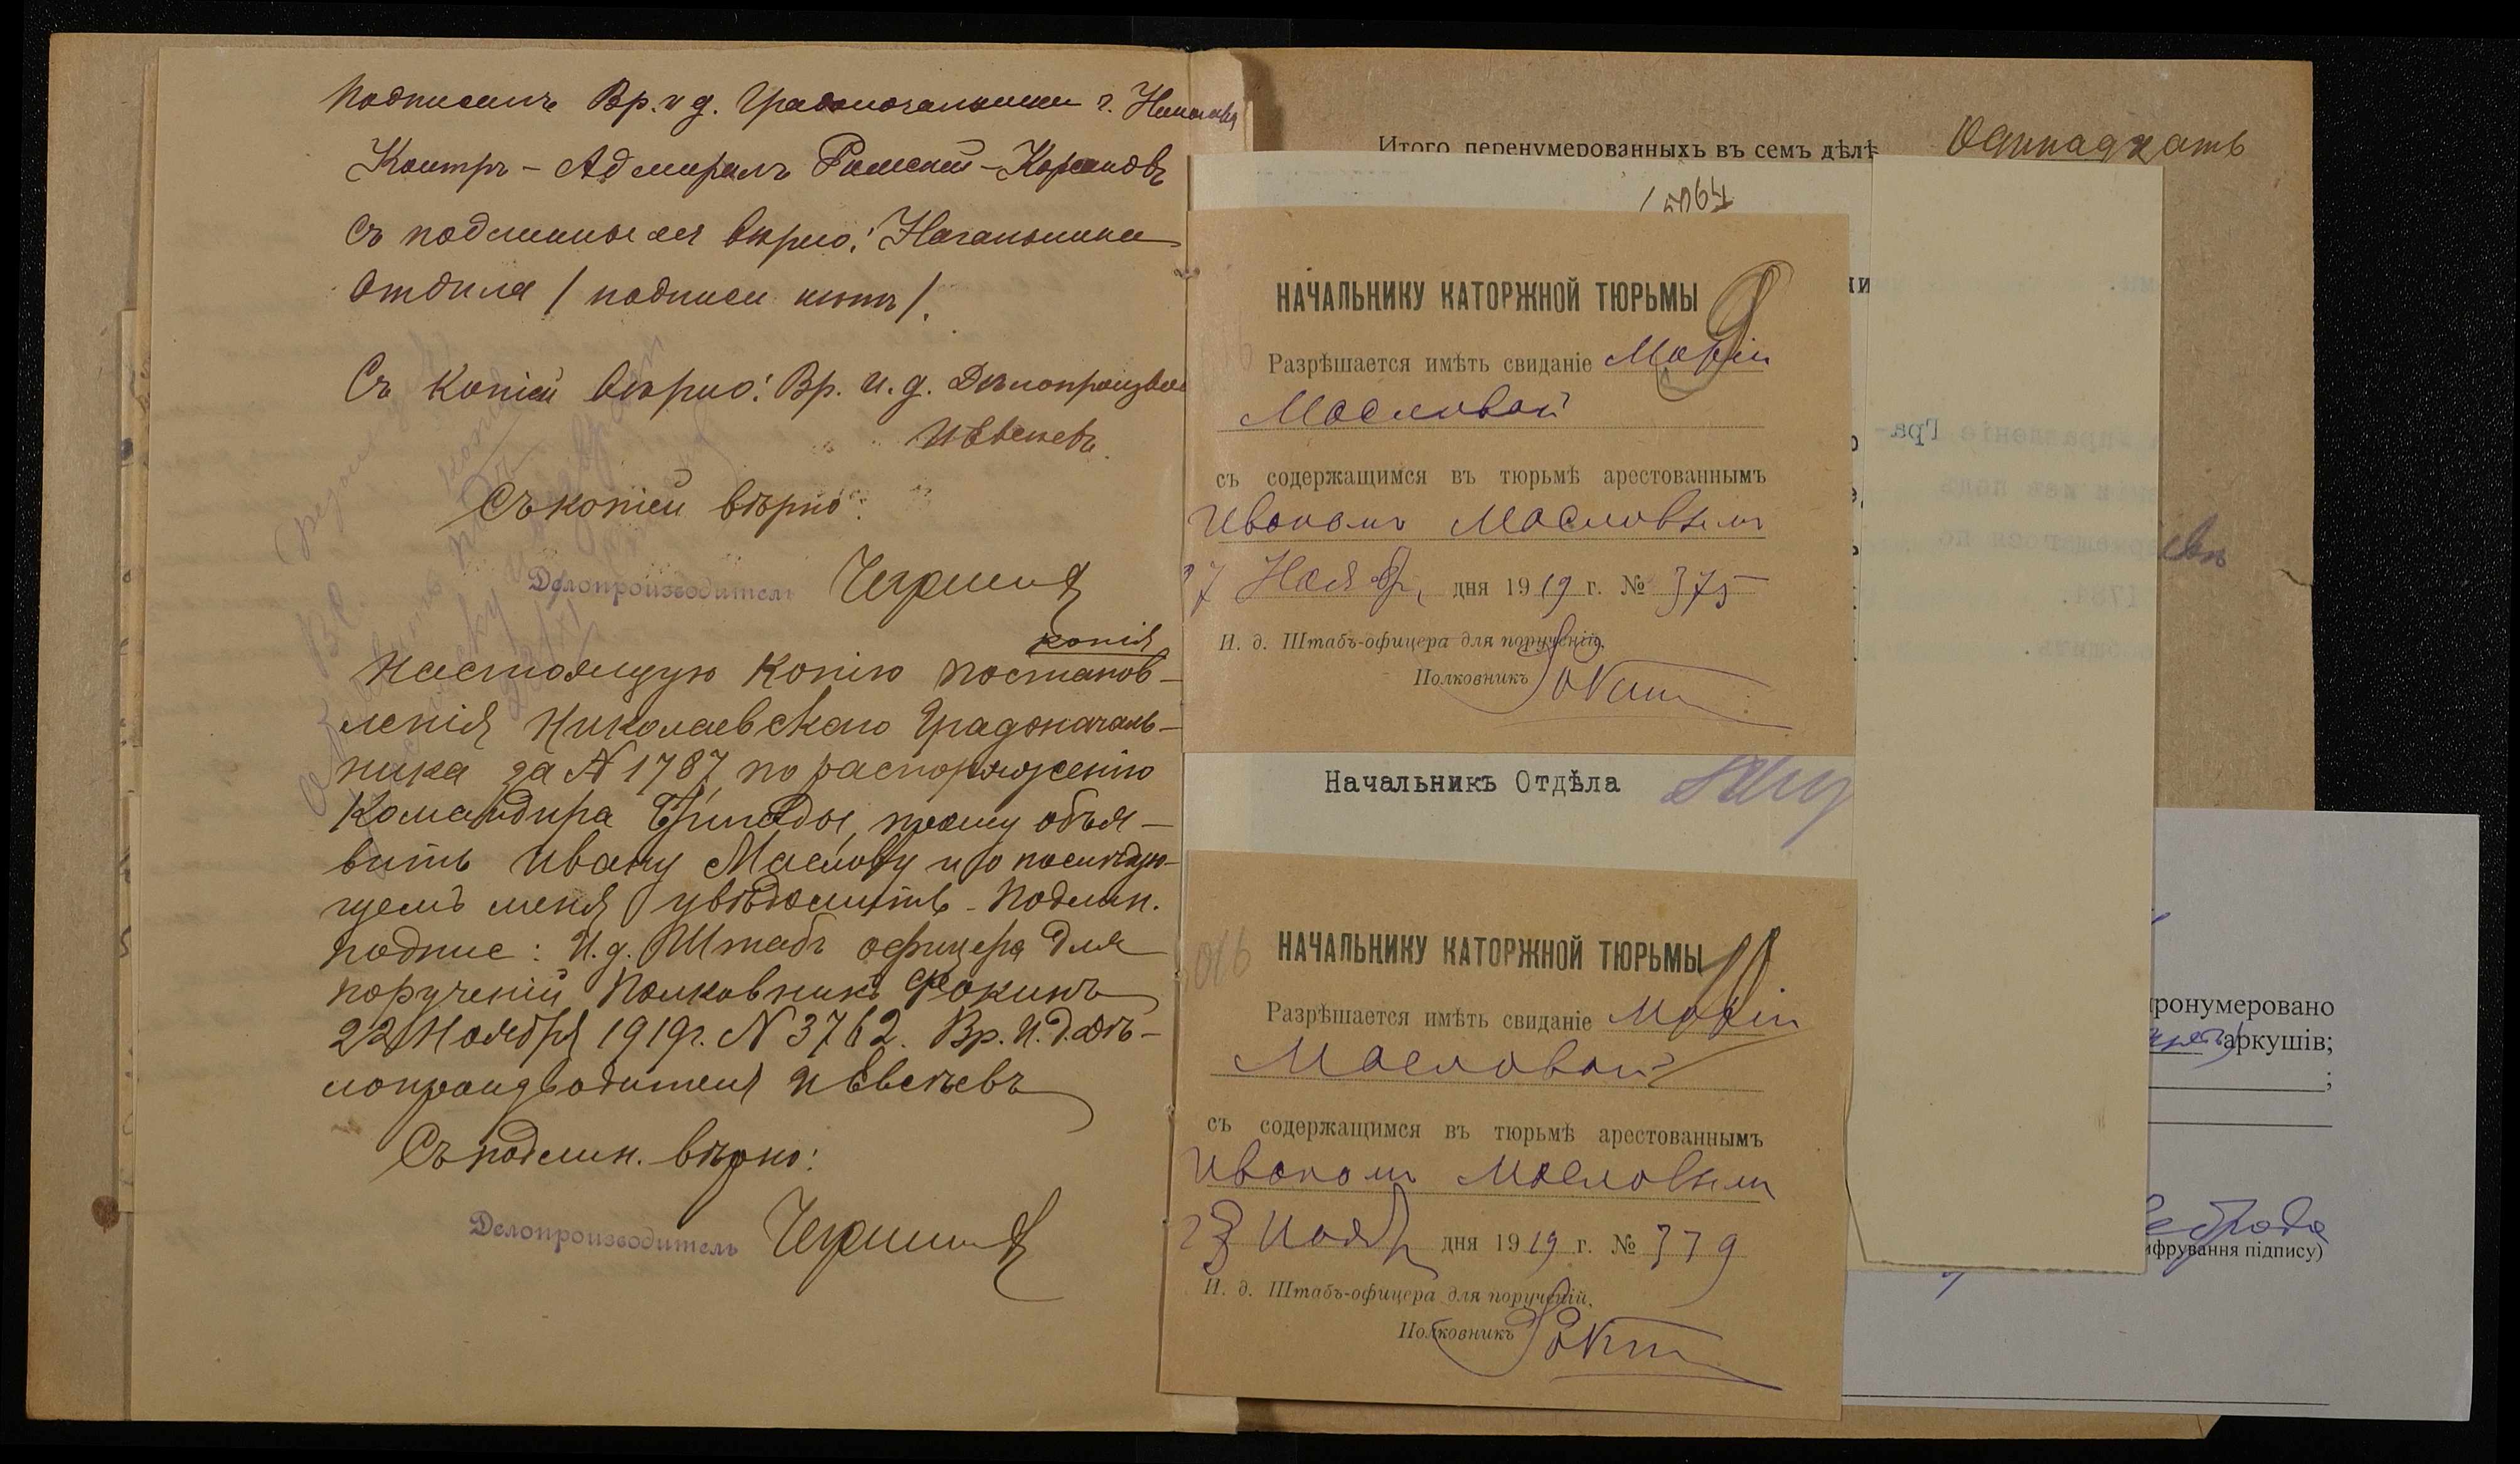 Подписалъ Вр. и д. Градоначальника г. Николаева
Контръ-Адмиралъ Римскій-Корсаковъ
Съ подлиннымъ вѣрно: Начальника
Отдѣла / подписи нѣтъ /.
Съ копіей вѣрно: Вр. И. д. Дѣлопроизвод
И Евсѣевъ.
Съ копіей вѣрно:
Делопроизводитель
копія
Настоящую копію постанов-
ленія Николаевскаго Градоначаль-
ника за № 1787, по распоряженію
Командира Бригады, прошу объя-
вить Ивану Маслову и о послѣдую-
щемъ меня увѣдомить. Подлин.
подпис: И.д. Штабъ офицера для
порученій Полковникъ Фокинъ
22 Ноября 1919г. № 3762. Вр. И. Д. Дѣ-
лопроизводителя И Евсѣевъ
Съ подлин. вѣрно:
Делопроизводитель
Итого перенумерованныхъ въ семъ дѣлѣ Одинадцать
НАЧАЛЬНИКУ КАТОРЖНОЙ ТЮРЬМЫ
9
Разрѣшается имѣть свиданіе Маріи
Масловой
съ содержащимся въ тюрьмѣ арестованнымъ
Иваномъ Масловымъ
27 Ноябр, дня 1919 г. № 375
И. д. Штабъ-офицера для порученій,
Полковникъ Фокин
Начальникъ Отдѣла
НАЧАЛЬНИКУ КАТОРЖНОЙ ТЮРЬМЫ
10
Разрѣшается имѣть свиданіе Маріи
Масловой
съ содержащимся въ тюрьмѣ арестованнымъ
Иваномъ Масловымъ
28 Ноябр дня 1919 г. № 379
И. д. Штабъ-офицера для порученій,
Полковникъ Фокин
пронумеровано
аркушів;
ифрування підпису)